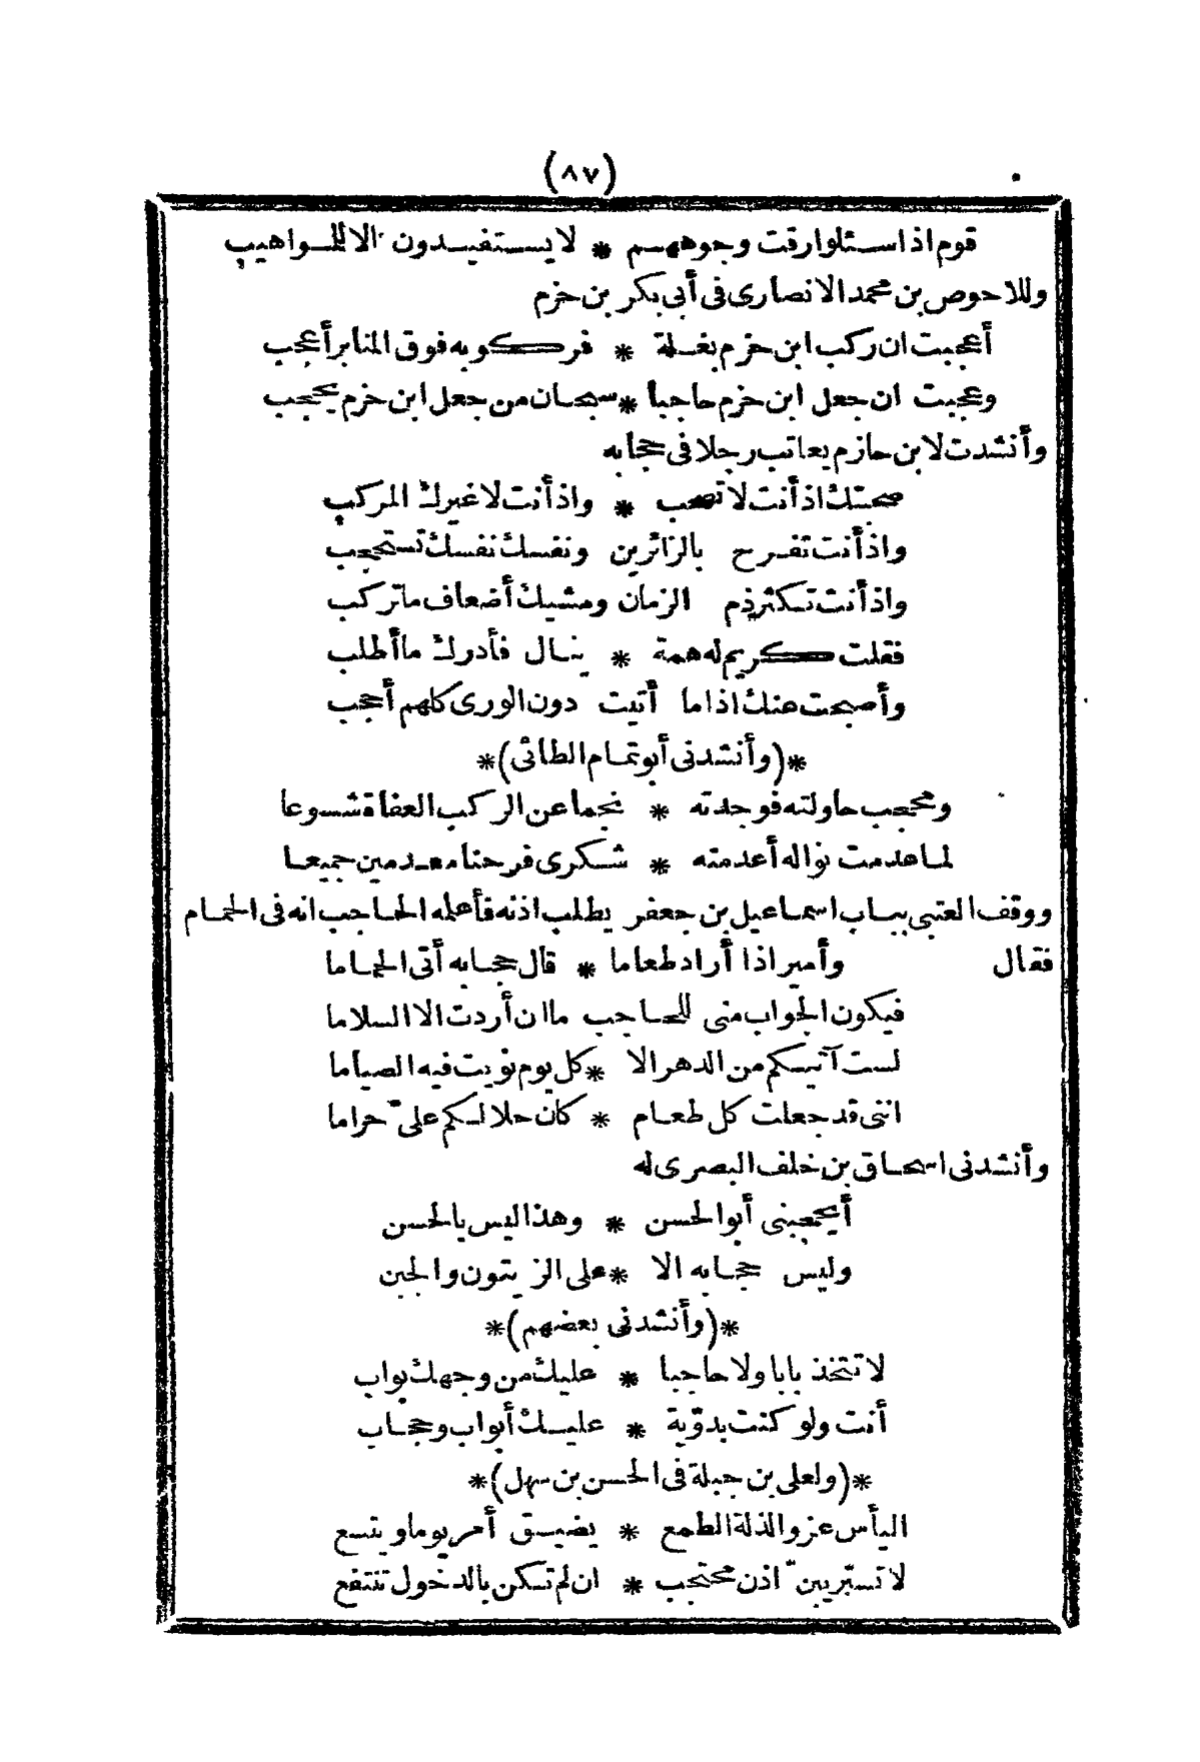 (٨٧)
قوم اذا سئلوا رقت وجوههم * لا يستفيدون الا للمواهيب
وللاحوص بن محمد الانصارى فى أبى بكر بن حزم
أعجبت ان ركب ابن حزم بغلة * فركوبه فوق المنابر أعجب
وعجبت ان جعل ابن حزم حاجبا * سبحان من جعل ابن حزم يحجب
وأنشدت لابن حازم يعاتب رجلا فى حجابه
صحبتك اذ أنت لا تصحب * واذ أنت لا غيرك المركب
واذ أنت تفرح بالزائرين ونفسك نفسك تستحجب
واذ أنت تكثر ذم الزمان ومشيك أضعاف ما تركب
فقلت كريم له همة * ينال فأدرك ما أطلب
وأصبحت عنك اذا ما أتيت دون الورى كلهم أحجب
*(وأنشدنى أبو تمام الطائى)*
ومحجب حاولته فوجدته * نجما عن الركب العفاة شسوعا
لما عدمت نواله أعدمته * شكرى فرحنا معدمين جميعا
ووقف العتبى بباب اسماعيل بن جعفر يطلب اذنه فأعلمه الحاجب انه فى الحمام
فقال وأمير اذا أراد طعاما * قال حجابه أتى الحماما
فيكون الجواب منى للحاجب ما ان أردت الا السلاما
لست آتيكم من الدهر الا * كل يوم نويت فيه الصياما
اننى قد جعلت كل طعام * كان حلا لكم علىّ حراما
وأنشدنى اسحاق بن خلف البصرى له
أيحجبنى أبو الحسن * وهذا ليس بالحسن
وليس حجابه الا * على الزيتون والجبن
*(وأنشدنى بعضهم)*
لا تتخذ بابا ولا حاجبا * عليك من وجهك بواب
أنت ولو كنت بدوّية * عليك أبواب وحجاب
*(ولعلى بن جبلة فى الحسن بن سهل)*
اليأس عز والذلة الطمع * يضيق أمر يوما ويتسع
لا تستريبنّ اذن محتجب * ان لم تكن بالدخول تنتفع